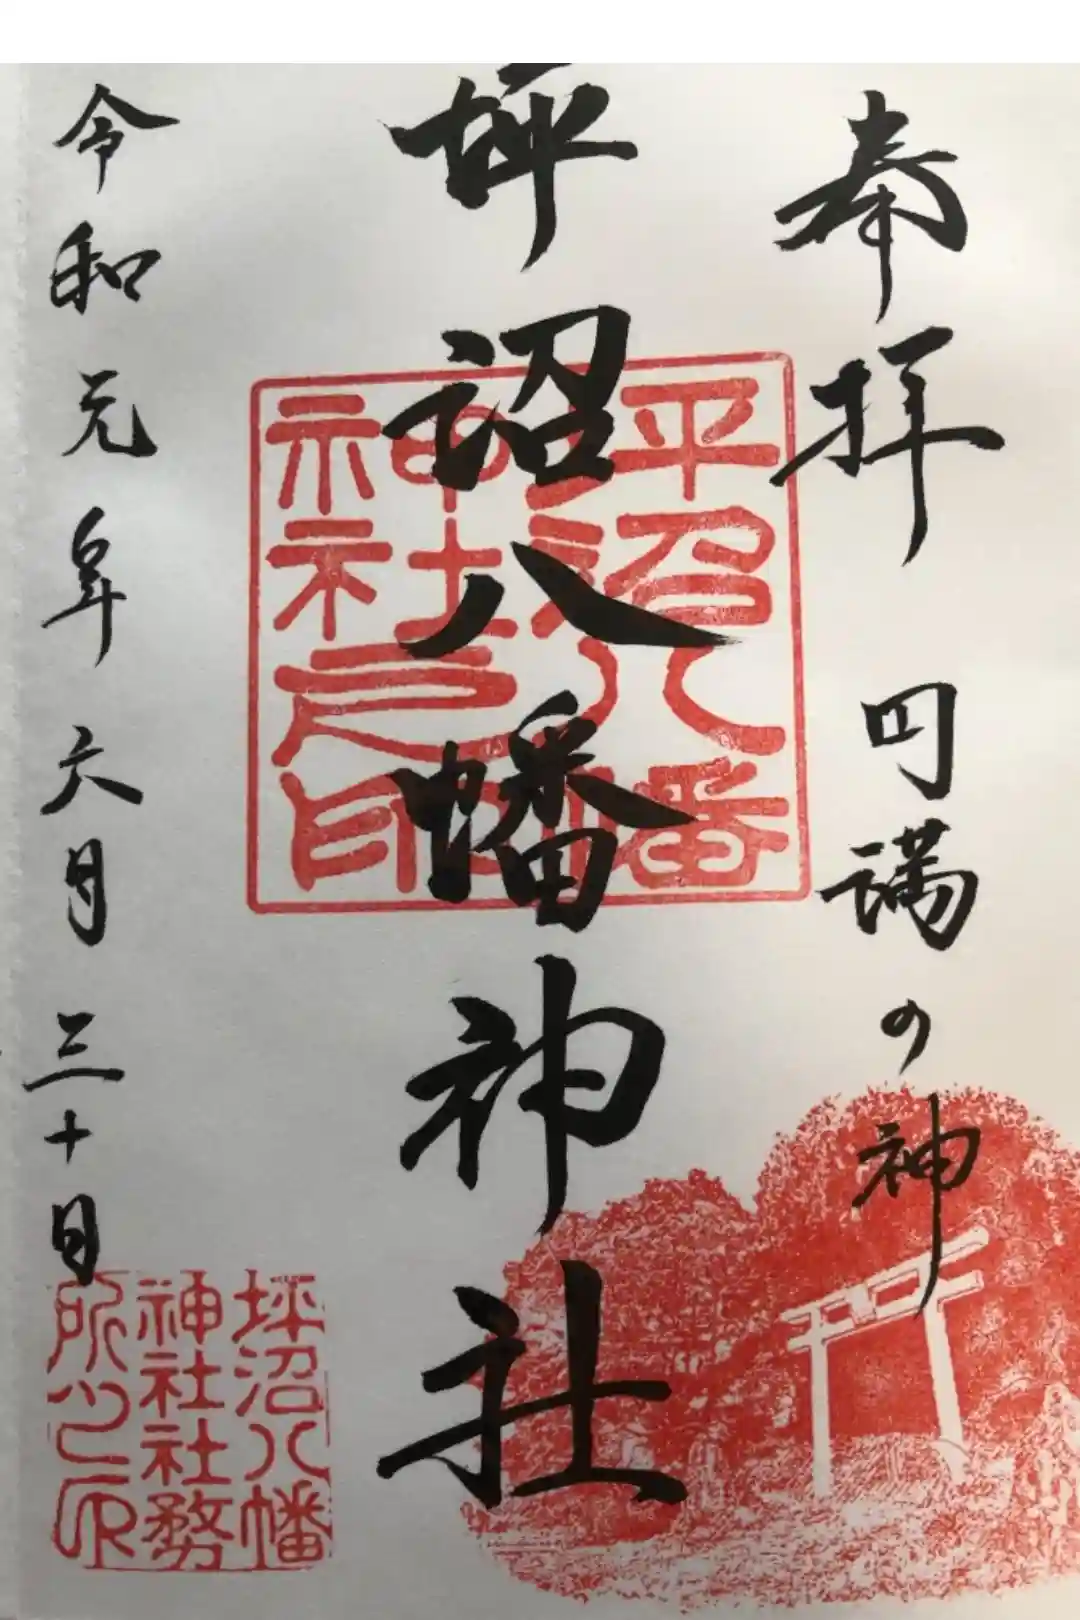 奉拝 円満の神
坪沼八幡神社
令和元年六月三十日
坪沼八幡
神社之印
坪沼八幡
神社社務
所之印